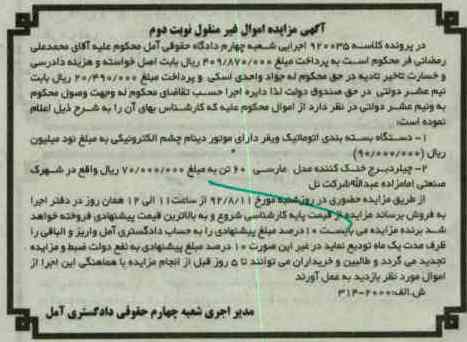 آگهی مزایده اموال غیر منقول نوبت دوم
در پرونده کلاسه ۹۲۰۰۳۵ اجرایی شعبه چهارم دادگاه حقوقی آمل محکوم علیه آقای محمدعلی
رمضانی فر محکوم است به پرداخت مبلغ ۴۰۹/۸۷۰/۰۰۰ ریال بابت اصل خواسته و هزینه دادرسی
و خسارت تاخیر تادیه در حق محکوم له جواد واحدی اسکی و پرداخت مبلغ ۲۰/۴۹۰/۰۰۰ ریال بابت
نیم عشر دولتی در حق صندوق دولت لذا دایره اجرا حسب تقاضای محکوم له وجهت وصول محکوم
به ونیم عشر دولتی در نظر دارد از اموال محکوم علیه که کارشناس بهای آن را به شرح ذیل اعلام
نموده است:
۱- دستگاه بسته بندی اتوماتیک ویفر دارای موتور دینام چشم الکترونیکی به مبلغ نود میلیون
ریال (۹۰/۰۰۰/۰۰۰)
۲- چیلردبرج خنک کننده مدل مارسی ۶۰ تن به مبلغ ۷۰/۰۰۰/۰۰۰ ریال واقع در شهرک
صنعتی امامزاده عبدالله شرکت تل
از طریق مزایده حضوری در روزشنبه مورخ ۹۲/۸/۱۱ از ساعت ۱۱ الی ۱۲ همان روز در دفتر اجرا
به فروش برساند مزایده از قیمت پایه کارشناسی شروع و به بالاترین قیمت پیشنهادی فروخته خواهد
شد برنده مزایده می بایست ۱۰ درصد مبلغ پیشنهادی را به حساب دادگستری آمل واریز و الباقی را
ظرف مدت یک ماه تودیع نماید در غیر این صورت ۱۰ درصد مبلغ پیشنهادی به نفع دولت ضبط و مزایده
تجدید می گردد و طالبین و خریداران می توانند تا ۵ روز قبل از انجام مزایده با هماهنگی این اجرا از
اموال مورد نظر بازدید به عمل آورند
ش.الف:۲۰۰۰-۳۱۴
مدیر اجری شعبه چهارم حقوقی دادگستری آمل